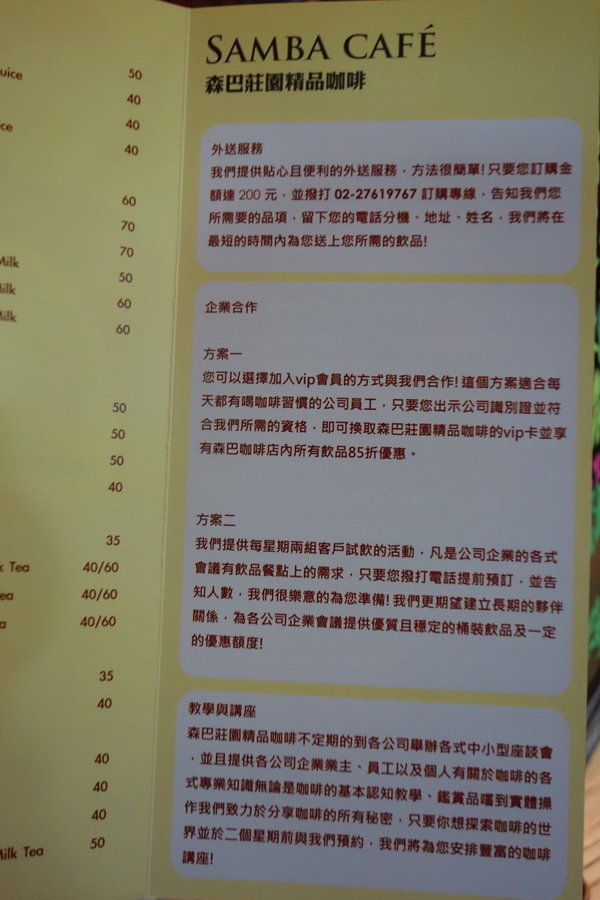 uice 50
40
ce 40
40
60
70
Milk 70
ilk 50
ilk 60
60
50
50
50
40
35
k Tea 40/60
ea 40/60
a 40/60
35
40
40
40
40
Milk Tea 50
SAMBA CAFÉ
森巴莊園精品咖啡
外送服務
我們提供貼心且便利的外送服務，方法很簡單!只要您訂購金
額達 200 元，並撥打 02-27619767 訂購專線，告知我們您
所需要的品項，留下您的電話分機、地址、姓名，我們將在
最短的時間內為您送上您所需的飲品!
企業合作
方案一
您可以選擇加入vip會員的方式與我們合作!這個方案適合每
天都有喝咖啡習慣的公司員工，只要您出示公司識別證並符
合我們所需的資格，即可換取森巴莊園精品咖啡的vip卡並享
有森巴咖啡店內所有飲品85折優惠。
方案二
我們提供每星期兩組客戶試飲的活動，凡是公司企業的各式
會議有飲品餐點上的需求，只要您撥打電話提前預訂，並告
知人數，我們很樂意的為您準備!我們更期望建立長期的夥伴
關係，為各公司企業會議提供優質且穩定的桶裝飲品及一定
的優惠額度!
教學與講座
森巴莊園精品咖啡不定期的到各公司舉辦各式中小型座談會
，並且提供各公司企業業主、員工以及個人有關於咖啡的各
式專業知識無論是咖啡的基本認知教學、鑑賞品嚐到實體操
作我們致力於分享咖啡的所有秘密，只要你想探索咖啡的世
界並於二個星期前與我們預約，我們將為您安排豐富的咖啡
講座!